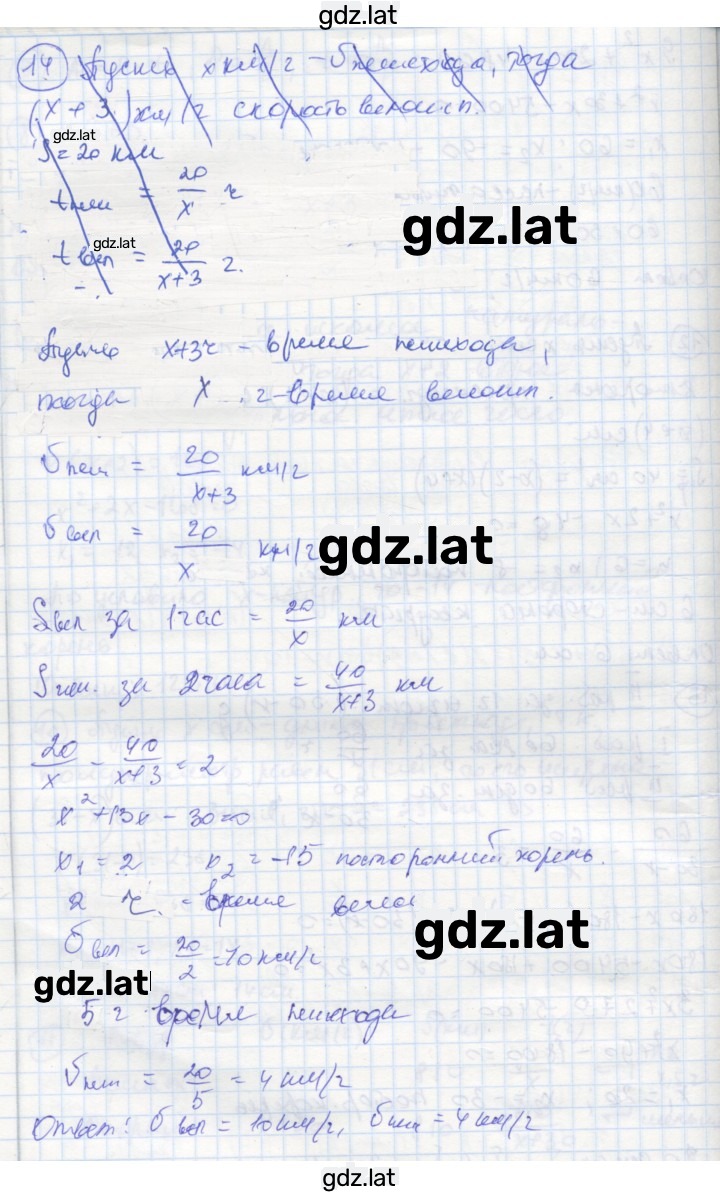 gdz.lat
14 Пусть x км/ч – υ пешехода, тогда
(x + 3) км/ч скорость велосип.
gdz.lat
S = 20 км
t пеш = 20/x ч
gdz.lat
gdz.lat
t вел = 20/x+3 ч.
Пусть x+3 ч – время пешехода,
тогда x ч – время велосип.
υ пеш = 20/x+3 км/ч
υ вел = 20/x км/ч
gdz.lat
S вел за 1 час = 20/x км
S пеш. за 2 часа = 40/x+3 км
20/x – 40/x+3 = 2
x² + 13x – 30 = 0
x₁ = 2 x₂ = –15 посторонний корень.
2 ч. – время велос
gdz.lat
υ вел = 20/2 = 10 км/ч
gdz.lat
5 ч время пешехода
υ пеш = 20/5 = 4 км/ч
Ответ: υ вел = 10 км/ч, υ пеш = 4 км/ч
gdz.lat